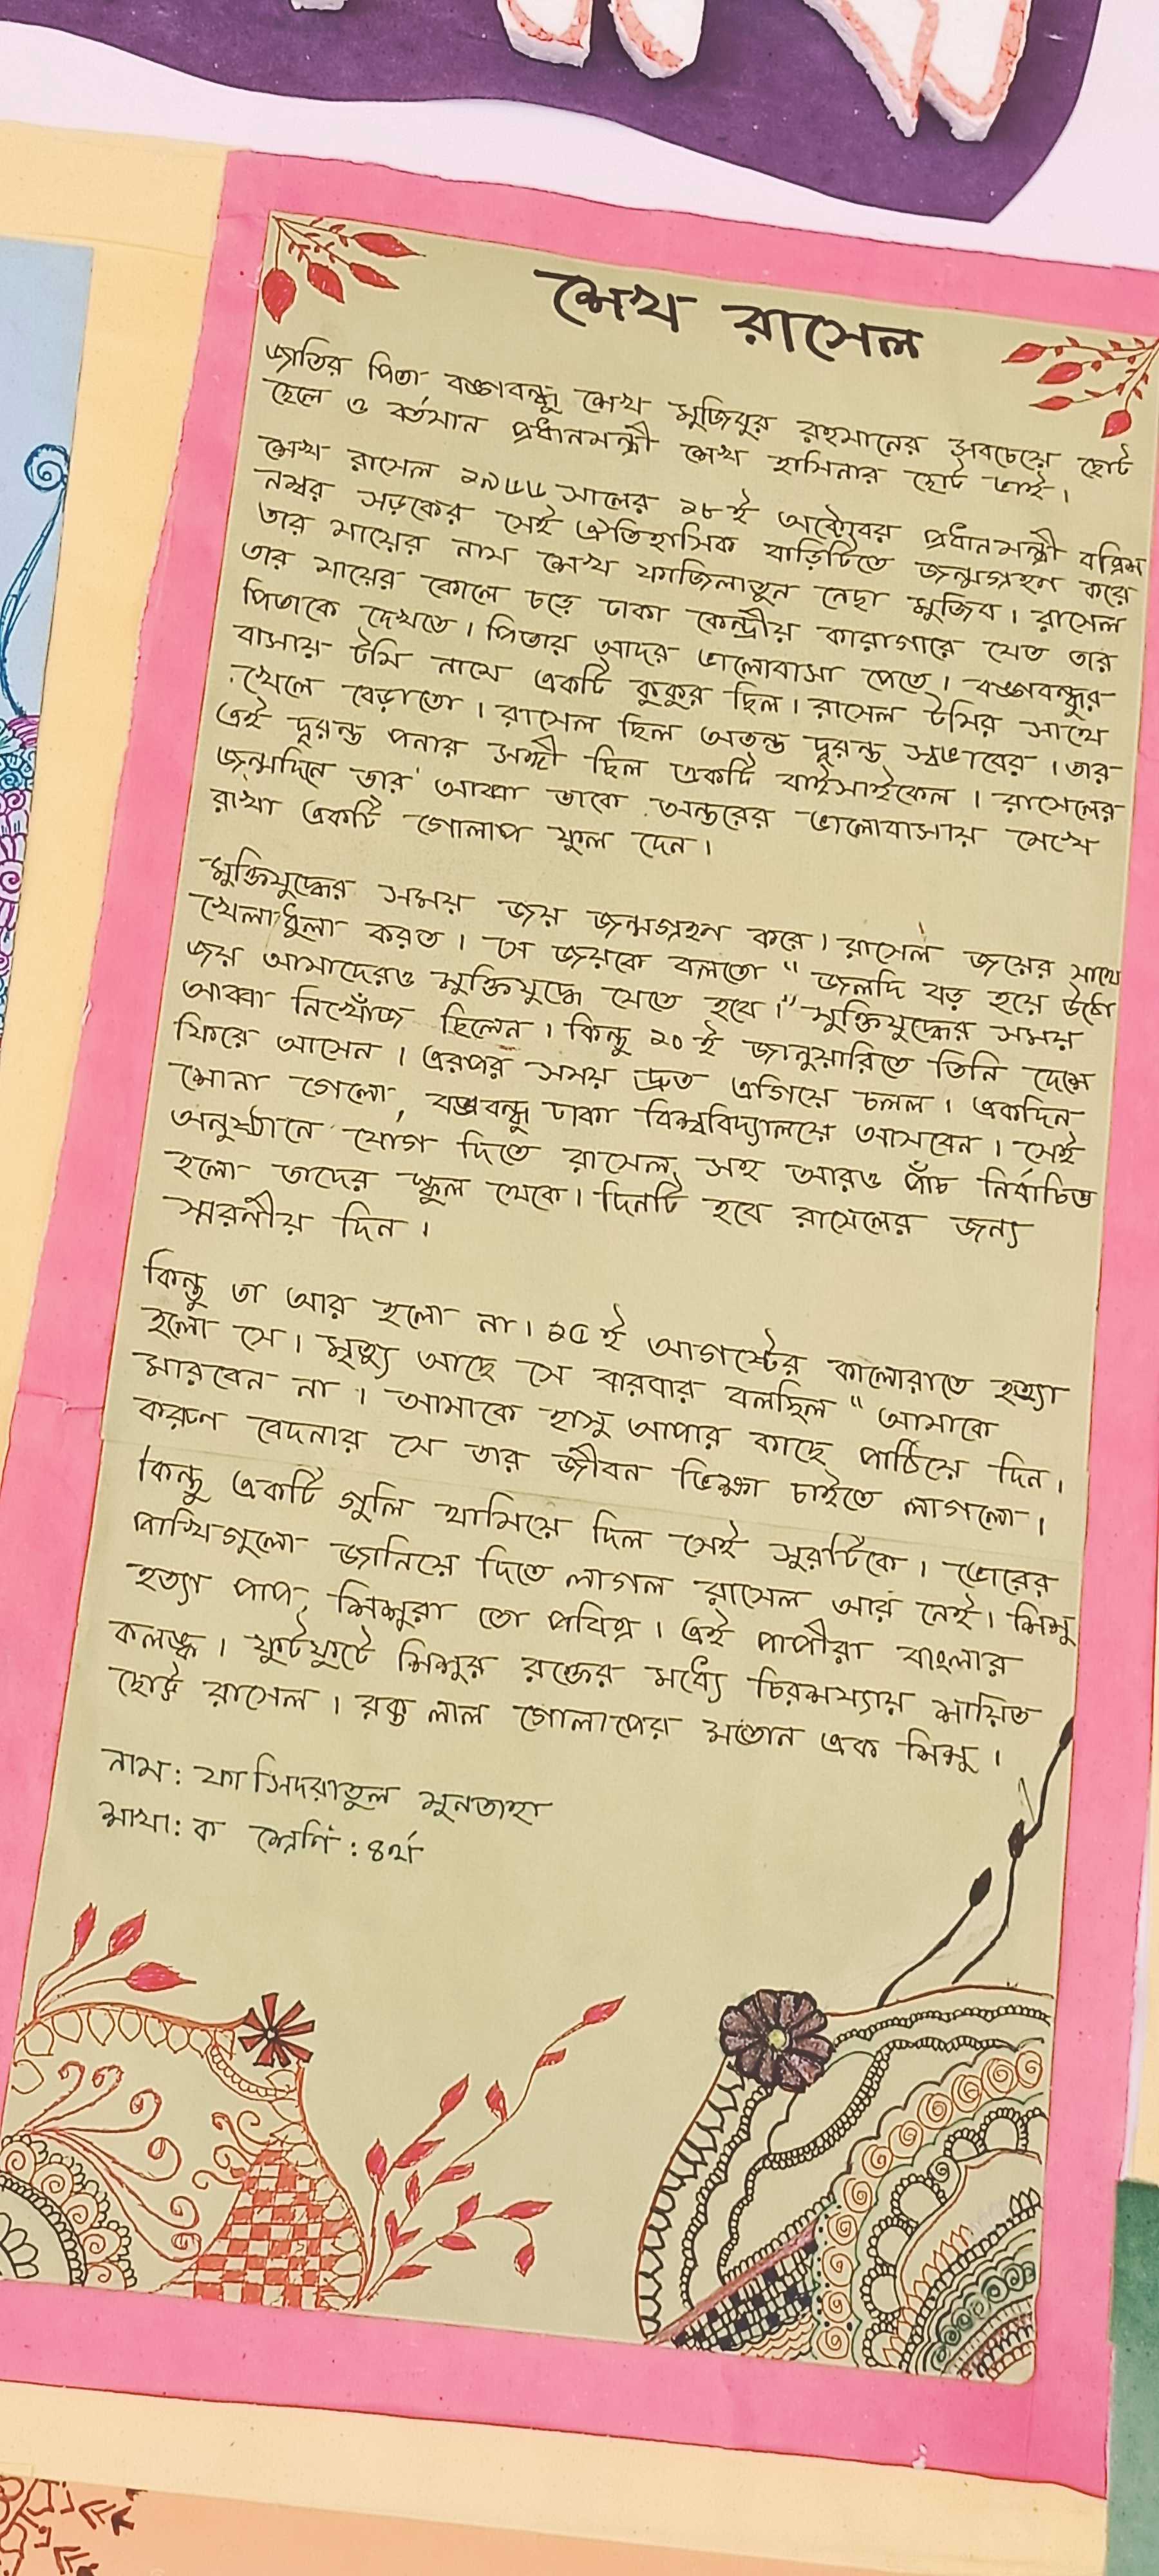 শেখ রাসেল
জাতির পিতা বঙ্গবন্ধু শেখ মুজিবুর রহমানের সবচেয়ে ছোট
ছেলে ও বর্তমান প্রধানমন্ত্রী শেখ হাসিনার ছোট ভাই।
শেখ রাসেল সালের ১৮ই অক্টোবর প্রধানমন্ত্রী বত্রিশ
নম্বর সড়কের সেই ঐতিহাসিক বাড়িটিতে জন্মগ্রহন করে
তার মায়ের নাম শেখ ফজিলাতুন নেছা মুজিব। রাসেল
তার মায়ের কোলে চড়ে ঢাকা কেন্দ্রীয় কারাগারে যেত তার
পিতাকে দেখতে। পিতার আদর ভালোবাসা পেতে। বঙ্গবন্ধুর
বাসায় টমি নামে একটি কুকুর ছিল। রাসেল টমির সাথে
খেলে বেড়াতো। রাসেল ছিল অতন্ত দুরন্ত স্বভাবের। তার
এই দুরন্ত পনার সঙ্গী ছিল একটি বাইসাইকেল। রাসেলের
জন্মদিনে তার আব্বা তাকে অন্তরের ভালোবাসায় মেখে
রাখা একটি গোলাপ ফুল দেন।
মুক্তিযুদ্ধের সময় জয় জন্মগ্রহন করে। রাসেল জয়ের সাথে
খেলাধুলা করত। সে জয়কে বলতো "জলদি বড় হয়ে উঠো
জয় আমাদেরও মুক্তিযুদ্ধে যেতে হবে।" মুক্তিযুদ্ধের সময়
আব্বা নিখোঁজ ছিলেন। কিন্তু ১০ই জানুয়ারিতে তিনি দেশে
ফিরে আসেন। এরপর সময় দ্রুত এগিয়ে চলল। একদিন
শোনা গেলো, বঙ্গবন্ধু ঢাকা বিশ্ববিদ্যালয়ে আসবেন। সেই
অনুষ্ঠানে যোগ দিতে রাসেল সহ আরও পাঁচ নির্বাচিত
হলো তাদের স্কুল থেকে। দিনটি হবে রাসেলের জন্য
স্মরনীয় দিন।
কিন্তু তা আর হলো না। ১৫ই আগস্টের কালোরাতে হত্যা
হলো সে। মৃত্যু আছে সে বারবার বলছিল "আমাকে
মারবেন না। আমাকে হাসু আপার কাছে পাঠিয়ে দিন।
করুণ বেদনার সে তার জীবন ভিক্ষা চাইতে লাগলো।
কিন্তু একটি গুলি থামিয়ে দিল সেই সুরটিকে। ভোরের
পাখিগুলো জানিয়ে দিতে লাগল রাসেল আর নেই। শিশু
হত্যা পাপ, শিশুরা তো পবিত্র। এই পাপীরা বাংলার
কলঙ্ক। ফুটফুটে শিশুর রক্তের মধ্যে চিরশয্যায় শায়িত
ছোট্ট রাসেল। রক্ত লাল গোলাপের মতোন এক শিশু।
নাম: ফা সিদরাতুল মুনতাহা
শাখা: ক শ্রেণি: ৪র্থ